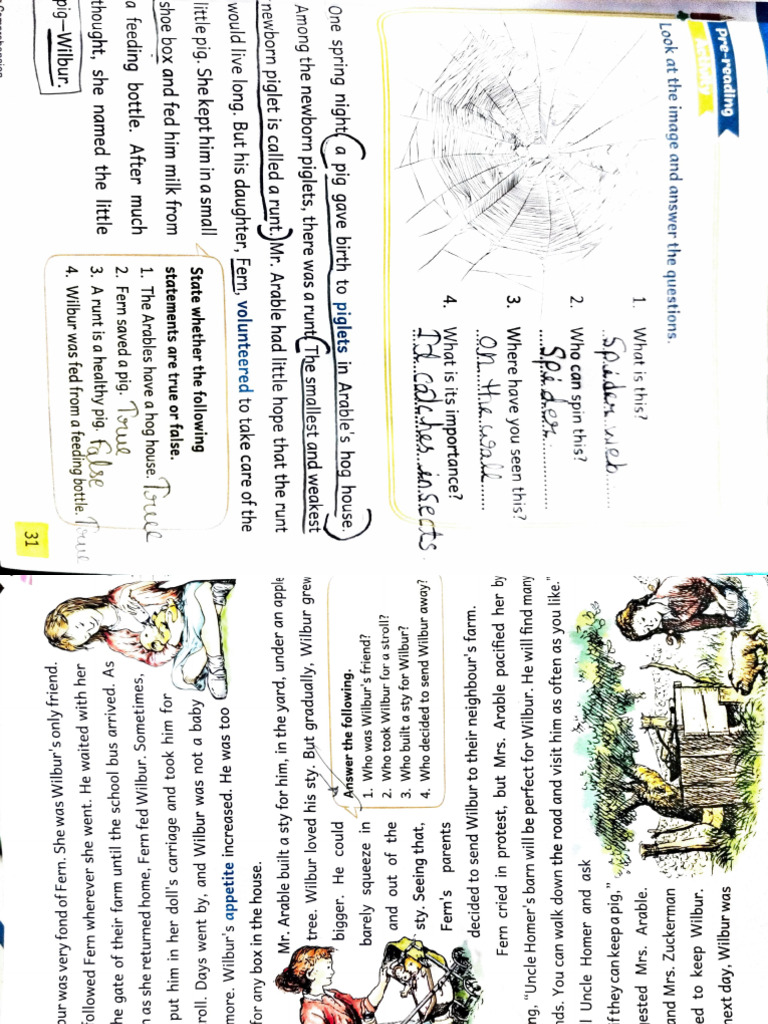 Pre-reading
Activity
Look at the image and answer the questions.
1. What is this?
Spider web
2. Who can spin this?
Spider
3. Where have you seen this?
on the wall
4. What is its importance?
It catches insects
One spring night, a pig gave birth to piglets in Arable's hog house.
Among the newborn piglets, there was a runt. The smallest and weakest
newborn piglet is called a runt. Mr. Arable had little hope that the runt
would live long. But his daughter, Fern, volunteered to take care of the
little pig. She kept him in a small
shoe box and fed him milk from
a feeding bottle. After much
thought, she named the little
pig—Wilbur.
State whether the following
statements are true or false.
1. The Arables have a hog house. True
2. Fern saved a pig. True
3. A runt is a healthy pig. False
4. Wilbur was fed from a feeding bottle. True
31
was very fond of Fern. She was Wilbur's only friend.
followed Fern wherever she went. He waited with her
the gate of their farm until the school bus arrived. As
as she returned home, Fern fed Wilbur. Sometimes,
put him in her doll's carriage and took him for
Days went by, and Wilbur was not a baby
more. Wilbur's appetite increased. He was too
for any box in the house.
Mr. Arable built a sty for him, in the yard, under an apple
tree. Wilbur loved his sty. But gradually, Wilbur grew
bigger. He could
barely squeeze in
and out of the
sty. Seeing that,
Fern's parents
decided to send Wilbur to their neighbour's farm.
Answer the following.
1. Who was Wilbur's friend?
2. Who took Wilbur for a stroll?
3. Who built a sty for Wilbur?
4. Who decided to send Wilbur away?
Fern cried in protest, but Mrs. Arable pacified her by
"Uncle Homer's barn will be perfect for Wilbur. He will find many
You can walk down the road and visit him as often as you like."
Uncle Homer and ask
if they can keep a pig,"
Mrs. Arable.
and Mrs. Zuckerman
to keep Wilbur.
next day, Wilbur was